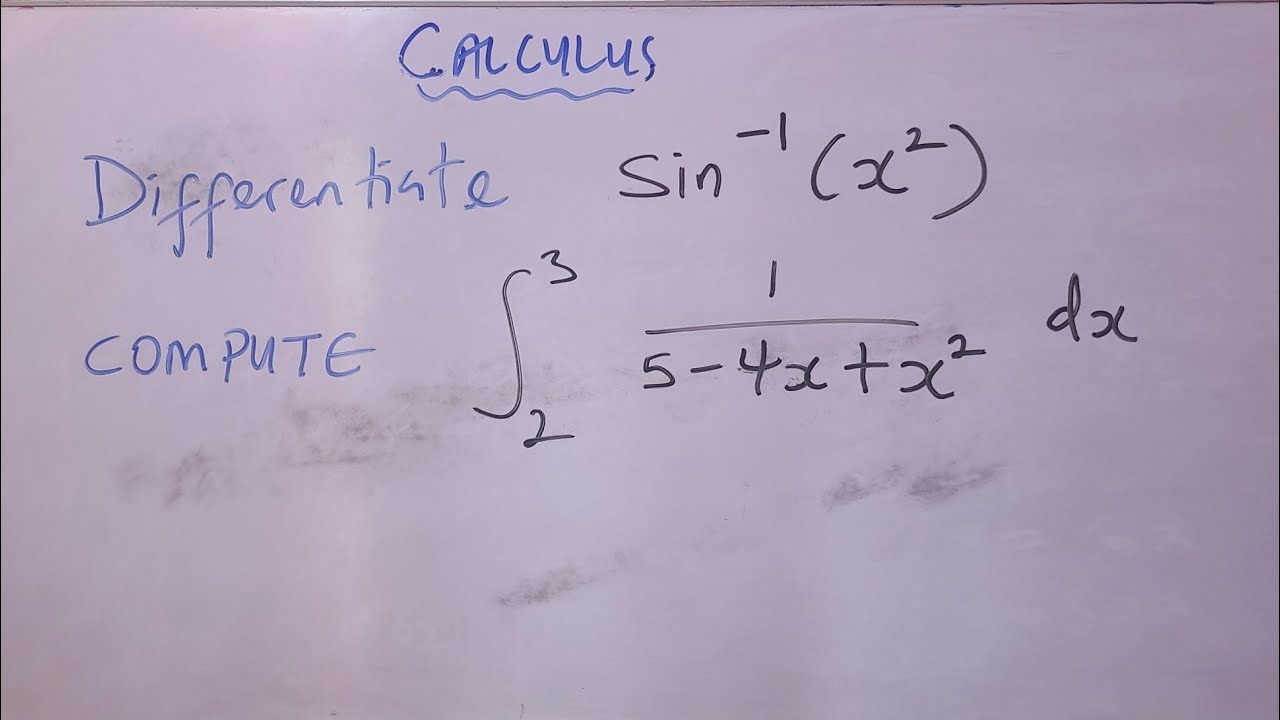 CALCULUS
Differentiate sin⁻¹(x²)
COMPUTE ∫₂³ 1/(5-4x+x²) dx